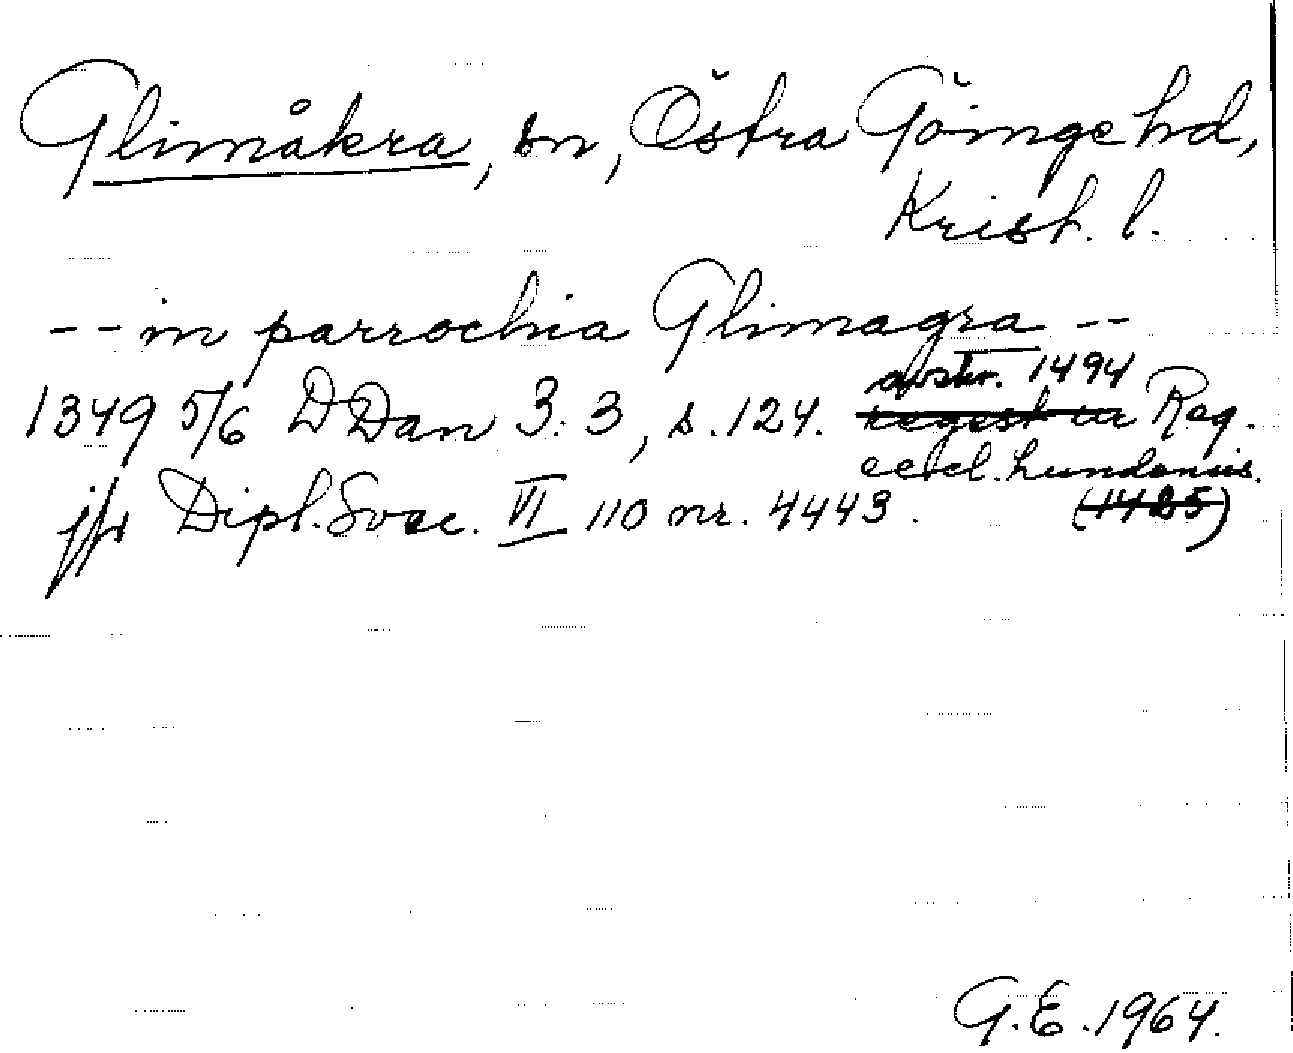 Glimåkra, sn, Östra Göinge hd,
Krist. l.
-- in parrochia Glimagra --
avskr. 1494
1349 5/6 DDan 3:3, s. 124. regest ur Reg.
eccl. Lundensis.
jfr Dipl. Svec. VI 110 nr. 4443. (1485)
G.E. 1964.